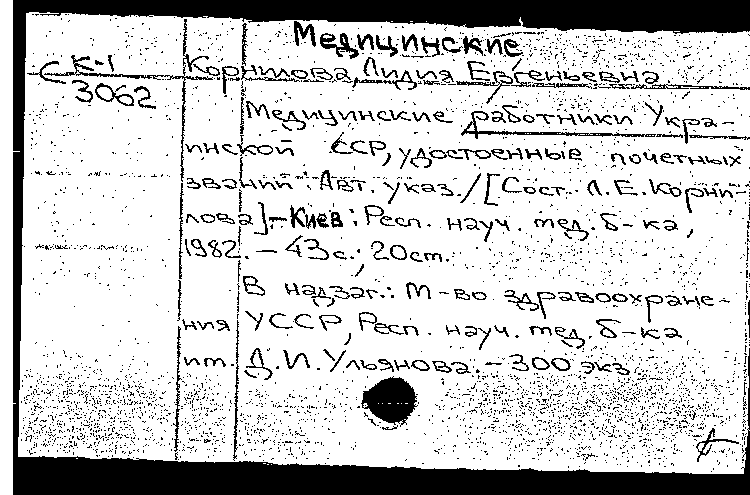 Медицинские
С К-1
3062
Корнилова, Лидия Евгеньевна
Медицинские работники Укра-
инской ССР, удостоенные почетных
званий: Авт. указ./[Сост. Л.Е.Корни-
лова].-Киев: Респ. науч. мед. б-ка,
1982. - 43с.; 20см.
В надзаг.: М-во здравоохране-
ния УССР, Респ. науч. мед. б-ка
им. Д.И.Ульянова. - 300 экз